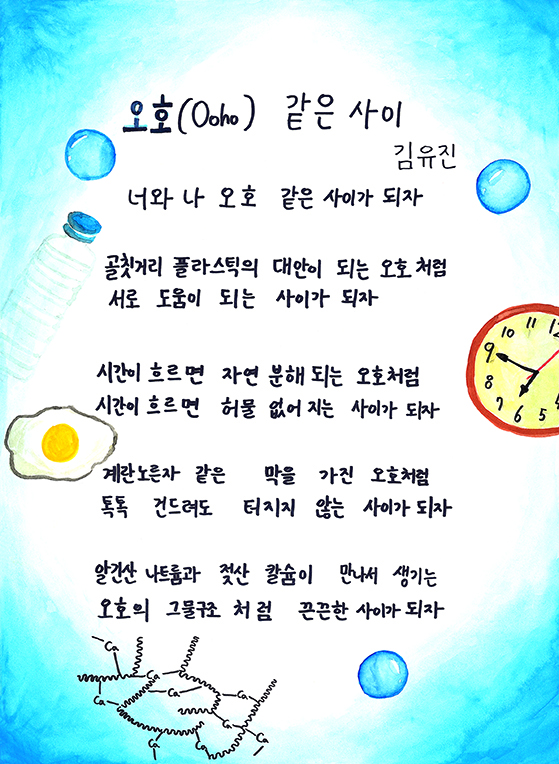 오호(Ooho) 같은 사이
김유진
너와 나 오호 같은 사이가 되자
골칫거리 플라스틱의 대안이 되는 오호처럼
서로 도움이 되는 사이가 되자
시간이 흐르면 자연 분해 되는 오호처럼
시간이 흐르면 허물 없어지는 사이가 되자
계란노른자 같은 막을 가진 오호처럼
톡톡 건드려도 터지지 않는 사이가 되자
알긴산 나트륨과 젖산 칼슘이 만나서 생기는
오호의 그물구조처럼 끈끈한 사이가 되자
10 11 12
9
8
7 6 5 4
Ca
Ca
Ca
Ca
Ca
Ca
Ca
Ca
Ca